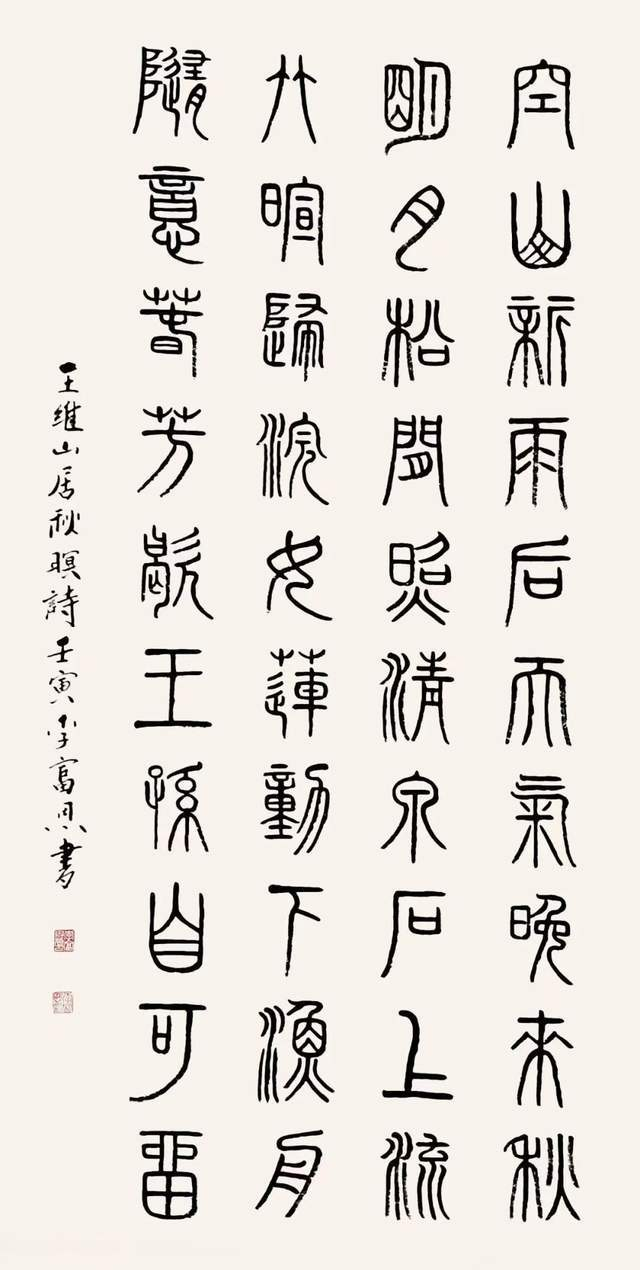 空山新雨后天氣晚來秋
朙月松閒照清泉石上流
竹暄歸浣女蓮動下漁舟
隨意萅芳歇王孫自可留
王維山居秋暝詩壬寅李富書